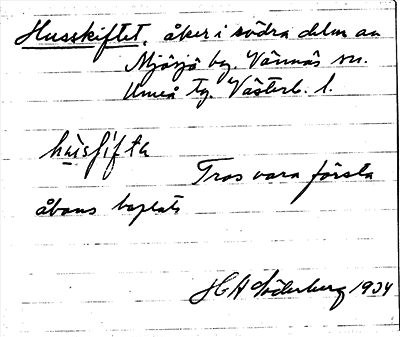 Husskiftet, åker i södra delen av
Mjösjö by, Vännäs sn.
Umeå tg. Västerb. l.
hùsʃifta
Tros vara första
åbons boplats
H A Söderberg 1934